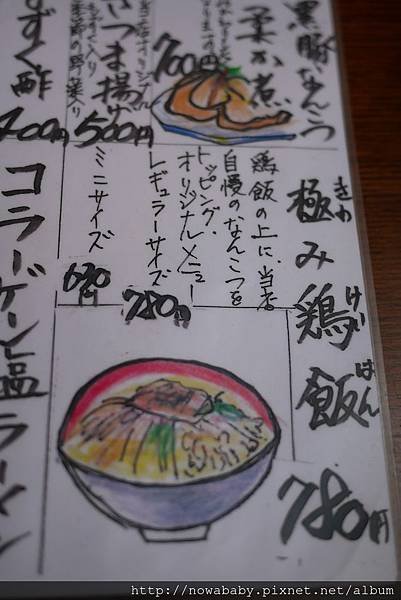 黒豚なんこつ
柔か煮
700円
さつま揚げ
500円
もずく酢
400円
極み鶏飯
きわ
けい
はん
780円
鶏飯の上に、当店
自慢のなんこつを
トッピング、
オリジナルメニュー
レギュラーサイズ
780円
ミニサイズ
630円
コラーゲン塩ラーメン
http://nowababy.pixnet.net/album